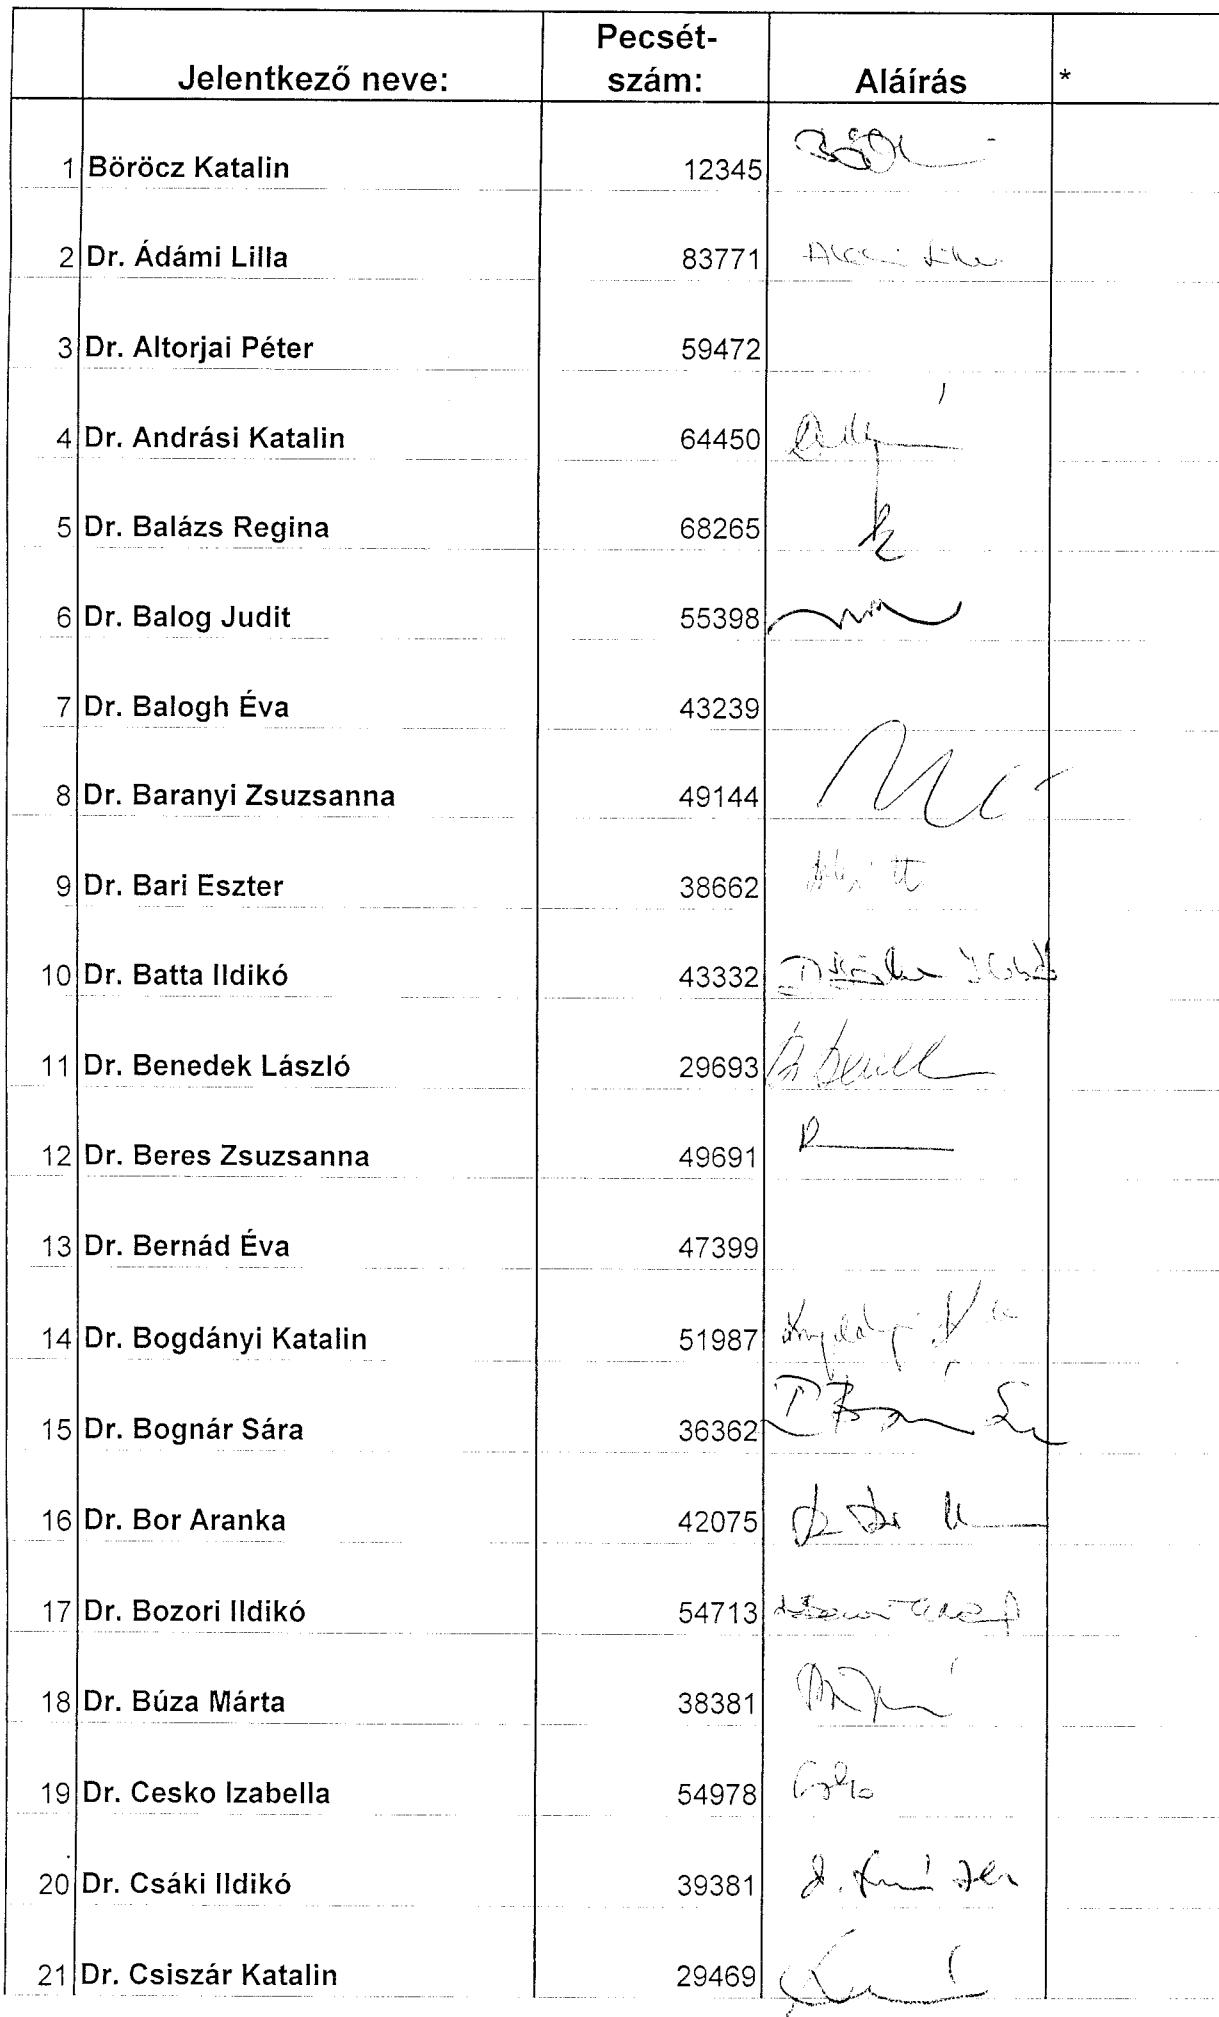 Jelentkező neve: Pecsét-szám: Aláírás *
1 Böröcz Katalin 12345
2 Dr. Ádámi Lilla 83771
3 Dr. Altorjai Péter 59472
4 Dr. Andrási Katalin 64450
5 Dr. Balázs Regina 68265
6 Dr. Balog Judit 55398
7 Dr. Balogh Éva 43239
8 Dr. Baranyi Zsuzsanna 49144
9 Dr. Bari Eszter 38662
10 Dr. Batta Ildikó 43332
11 Dr. Benedek László 29693
12 Dr. Beres Zsuzsanna 49691
13 Dr. Bernád Éva 47399
14 Dr. Bogdányi Katalin 51987
15 Dr. Bognár Sára 36362
16 Dr. Bor Aranka 42075
17 Dr. Bozori Ildikó 54713
18 Dr. Búza Márta 38381
19 Dr. Cesko Izabella 54978
20 Dr. Csáki Ildikó 39381
21 Dr. Csiszár Katalin 29469